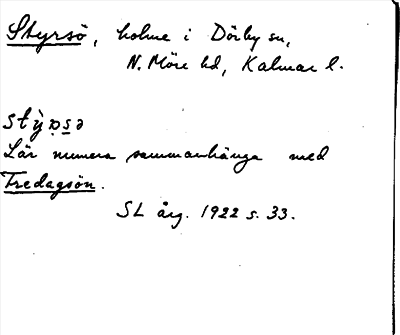 Styrsö, holme i Dörby sn,
N. Möre hd, Kalmar l.
Lär numera sammanhänga med
Tredagsön.
SL årg. 1922 s. 33.